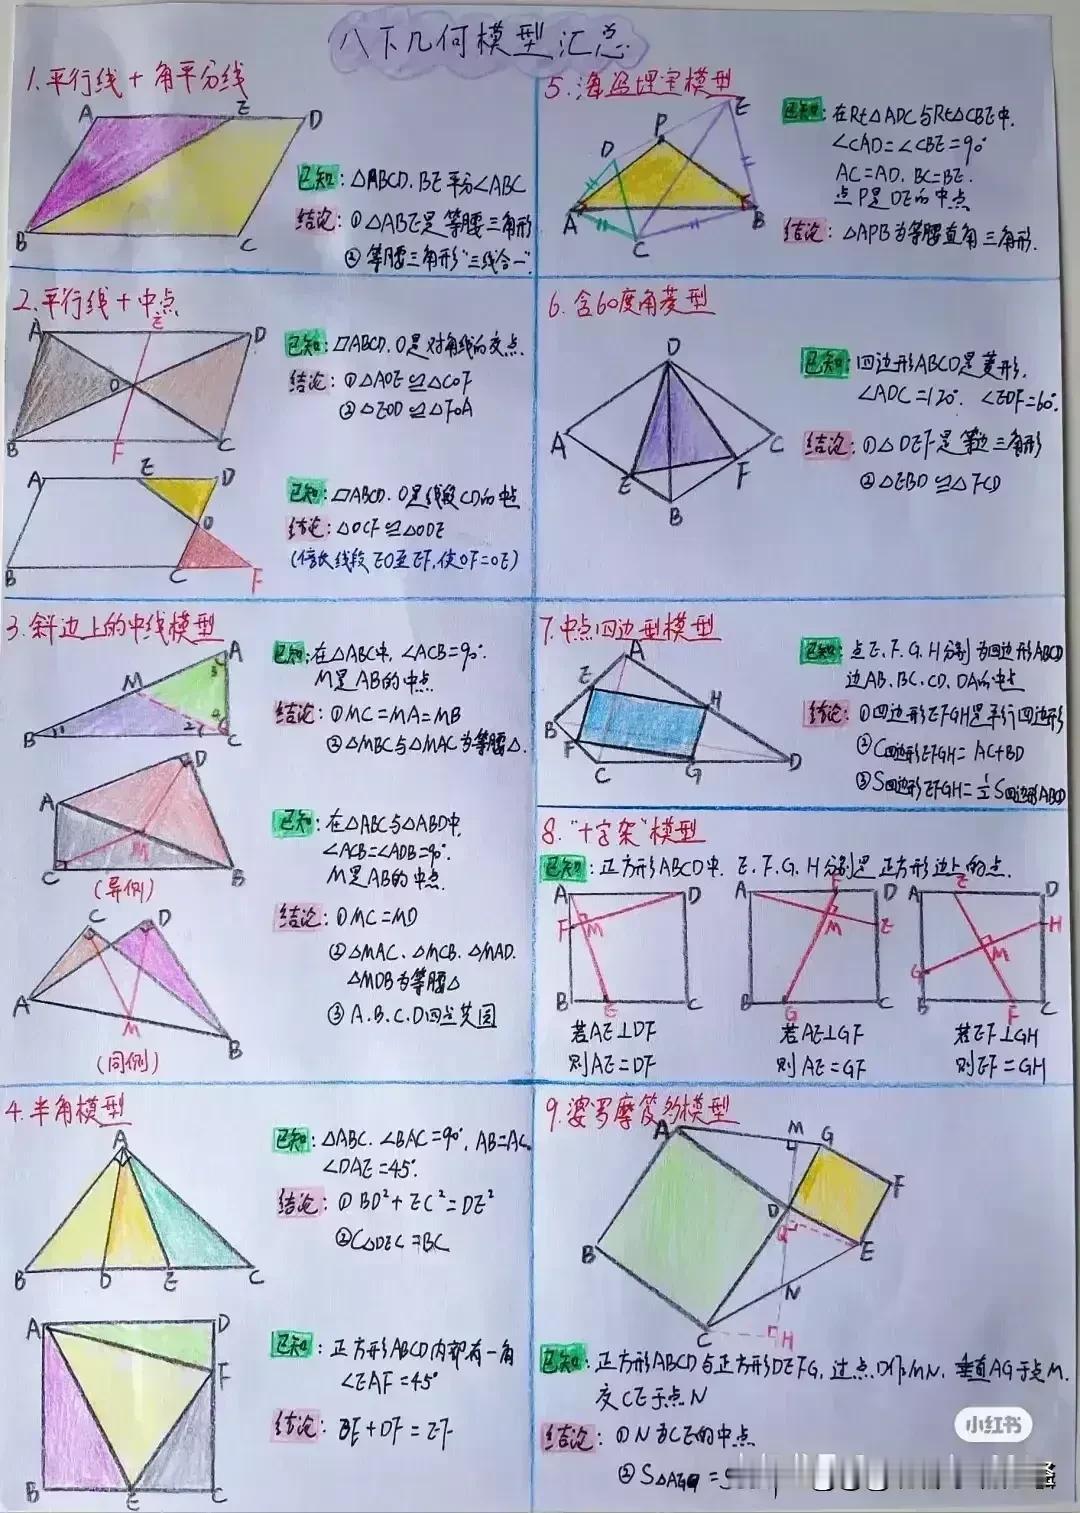 八下几何模型汇总
1.平行线+角平分线
A E D
B C
已知:△ABCD.BE平分∠ABC
结论:①△ABE是等腰三角形
②等腰三角形"三线合一"
2.平行线+中点
A E D
O
B F C
已知:▱ABCD.O是对角线的交点.
结论:①△AOE≌△COF
②△EOD≌△FOA
A E D
O
B C F
已知:▱ABCD.O是线段CD的中点
结论:△OCF≌△ODE
(倍长线段EO至EF,使OF=OE)
3.斜边上的中线模型
A
M 3
4
B 1 2 C
已知:在△ABC中,∠ACB=90°.
M是AB的中点
结论:①MC=MA=MB
②△MBC与△MAC为等腰△.
D
A
M
C B
(异侧)
C D
A M B
(同侧)
已知:在△ABC与△ABD中,
∠ACB=∠ADB=90°.
M是AB的中点.
结论:①MC=MD
②△MAC.△MCB.△MAD.
△MDB为等腰△
③A.B.C.D四点共圆
4.半角模型
A
B D E C
已知:△ABC.∠BAC=90°,AB=AC
∠DAE=45°.
结论:①BD²+EC²=DE²
A D
F
B E C
已知:正方形ABCD内部有一角
∠EAF=45°
结论:BE+DF=EF
5.海盗埋宝模型
E
P
D
A B
C
已知:在Rt△ADC与Rt△CBE中.
∠CAD=∠CBE=90°
AC=AD.BC=BE.
点P是DE的中点
结论:△APB为等腰直角三角形.
6.含60度角菱型
D
A C
E F
B
已知:四边形ABCD是菱形.
∠ADC=120°.∠EDF=60°.
结论:①△DEF是等边三角形
②△EBD≌△FCD
7.中点四边型模型
A
E H
B
F
C G D
已知:点E.F.G.H分别为四边形ABCD
边AB.BC.CD.DA的中点
结论:①四边形EFGH是平行四边形
②C四边形EFGH=AC+BD
③S四边形EFGH=½S四边形ABCD
8."十字架"模型
已知:正方形ABCD中.E.F.G.H分别是正方形边上的点.
A D
F M
B E C
若AE⊥DF
则AE=DF
A F D
M E
B G C
若AE⊥GF
则AE=GF
A E D
H
M
G
B F C
若EF⊥GH
则EF=GH
9.婆罗摩笈多模型
A M G
F
D
Q
B E
N
C H
已知:正方形ABCD与正方形DEFG,过点D作MN,垂直AG于点M,
交CE于点N
结论:①N为CE的中点
小红书